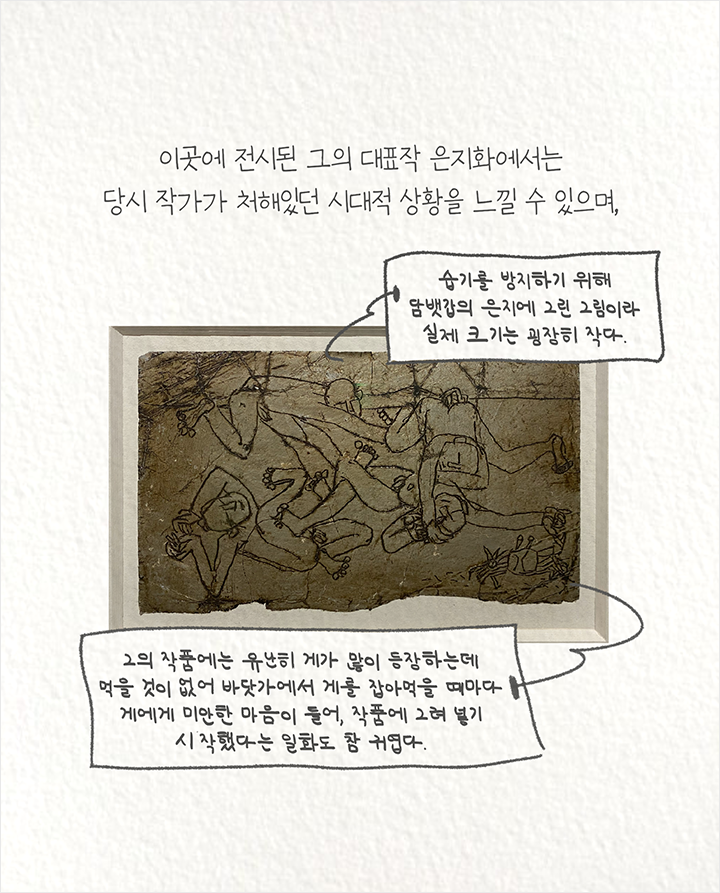 이곳에 전시된 그의 대표작 은지화에서는
당시 작가가 처해있던 시대적 상황을 느낄 수 있으며,
습기를 방지하기 위해
담뱃갑의 은지에 그린 그림이라
실제 크기는 굉장히 작다.
그의 작품에는 유난히 게가 많이 등장하는데
먹을 것이 없어 바닷가에서 게를 잡아먹을 때마다
게에게 미안한 마음이 들어, 작품에 그려 넣기
시작했다는 일화도 참 귀엽다.